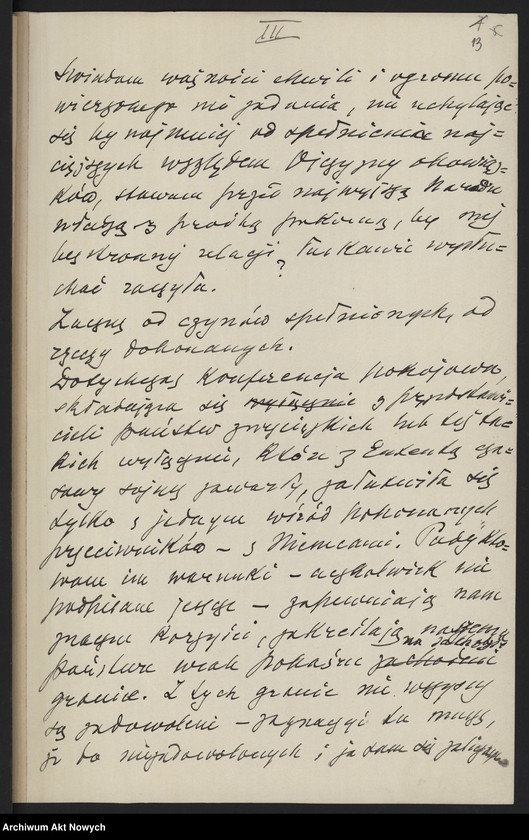 III
13
Świadom ważności chwili i ogromu po-
wierzonego mi zadania, nie uchylając
się bynajmniej od spełnienia naj-
cięższych względem Ojczyzny obowiąz-
ków, stawam przed najwyższą Narodu
władzą z prośbą pokorną, by mej
bezstronnej relacji łaskawie wysłu-
chać raczyła.
Zacznę od czynów spełnionych, od
rzeczy dokonanych.
Dotychczas Konferencja pokojowa,
składająca się wyłącznie z przedstawi-
cieli państw zwycięskich lub też ta-
kich wyłącznie, które z Ententą cza-
sowy sojusz zawarły, załatwiła się
tylko z jednym wśród pokonanych
przeciwników – z Niemcami. Podykto-
wane im warunki – aczkolwiek nie
podpisane jeszcze – zapewniają nam
znaczne korzyści, zakreślają naszemu
na zachodzie
państwu wcale pokaźne zachodnie
granice. Z tych granic nie wszyscy
są zadowoleni – zaznaczyć tu muszę,
że do niezadowolonych i ja sam się zaliczam
Archiwum Akt Nowych